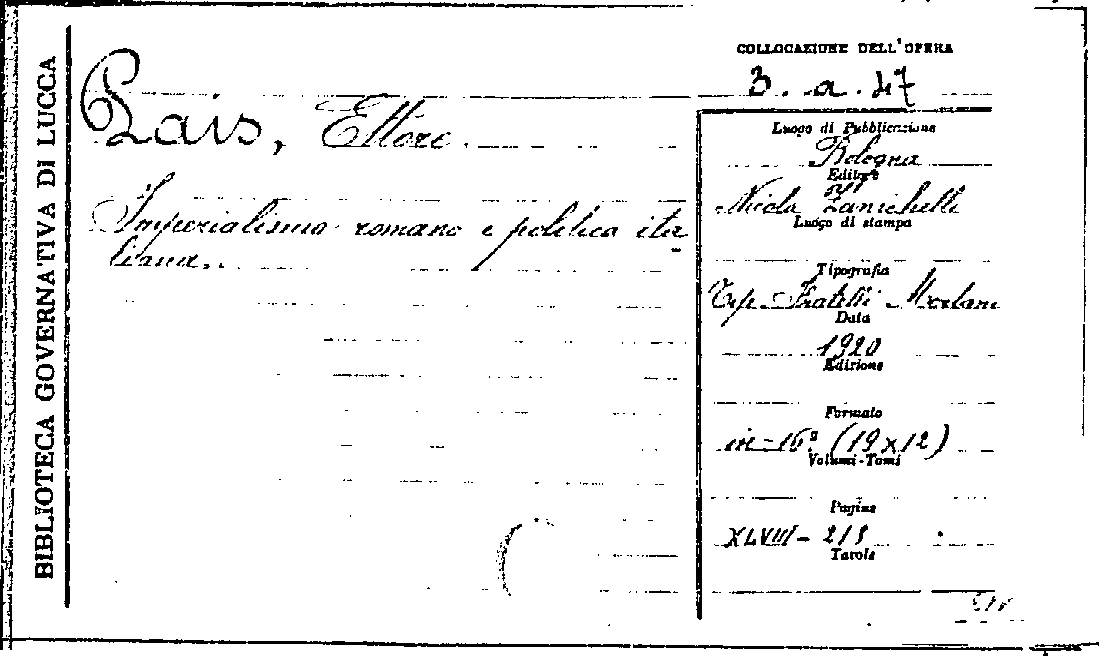 BIBLIOTECA GOVERNATIVA DI LUCCA
COLLOCAZIONE DELL'OPERA
3. a. 47
Pais, Ettore.
Imperialismo romano e politica ita
liana.
Luogo di Pubblicazione
Bologna
Editore
Nicola Zanichelli
Luogo di stampa
Tipografia
Tip. Fratelli Merlani
Data
1920
Edizione
Formato
in-16º (19x12)
Volumi-Tomi
Pagine
XLVIII-
Tavole